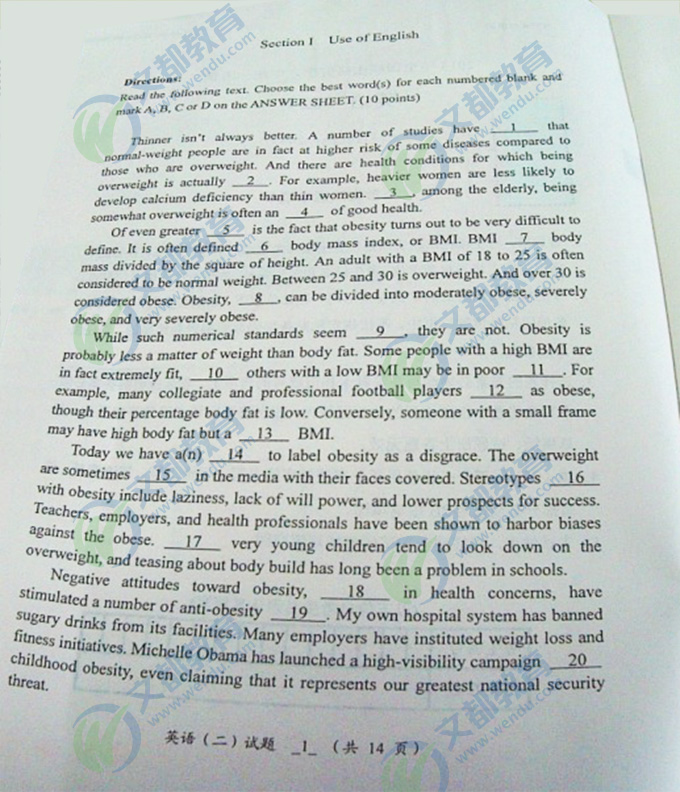 Section I Use of English
Directions:
Read the following text. Choose the best word(s) for each numbered blank and
mark A, B, C or D on the ANSWER SHEET. (10 points)
Thinner isn't always better. A number of studies have 1 that
normal-weight people are in fact at higher risk of some diseases compared to
those who are overweight. And there are health conditions for which being
overweight is actually 2 . For example, heavier women are less likely to
develop calcium deficiency than thin women. 3 , among the elderly, being
somewhat overweight is often an 4 of good health.
Of even greater 5 is the fact that obesity turns out to be very difficult to
define. It is often defined 6 body mass index, or BMI. BMI 7 body
mass divided by the square of height. An adult with a BMI of 18 to 25 is often
considered to be normal weight. Between 25 and 30 is overweight. And over 30 is
considered obese. Obesity, 8 , can be divided into moderately obese, severely
obese, and very severely obese.
While such numerical standards seem 9 , they are not. Obesity is
probably less a matter of weight than body fat. Some people with a high BMI are
in fact extremely fit, 10 others with a low BMI may be in poor 11 . For
example, many collegiate and professional football players 12 as obese,
though their percentage body fat is low. Conversely, someone with a small frame
may have high body fat but a 13 BMI.
Today we have a(n) 14 to label obesity as a disgrace. The overweight
are sometimes 15 in the media with their faces covered. Stereotypes 16
with obesity include laziness, lack of will power, and lower prospects for success.
Teachers, employers, and health professionals have been shown to harbor biases
against the obese. 17 very young children tend to look down on the
overweight, and teasing about body build has long been a problem in schools.
Negative attitudes toward obesity, 18 in health concerns, have
stimulated a number of anti-obesity 19 . My own hospital system has banned
sugary drinks from its facilities. Many employers have instituted weight loss and
fitness initiatives. Michelle Obama has launched a high-visibility campaign 20
childhood obesity, even claiming that it represents our greatest national security
threat.
英语（二）试题 _1_ （共 14 页）
文都教育
www.wendu.com
文都教育
www.wendu.com
文都教育
www.wendu.com
文都教育
www.wendu.com
文都教育
www.wendu.com
文都教育
www.wendu.com
文都教育
www.wendu.com
文都教育
www.wendu.com